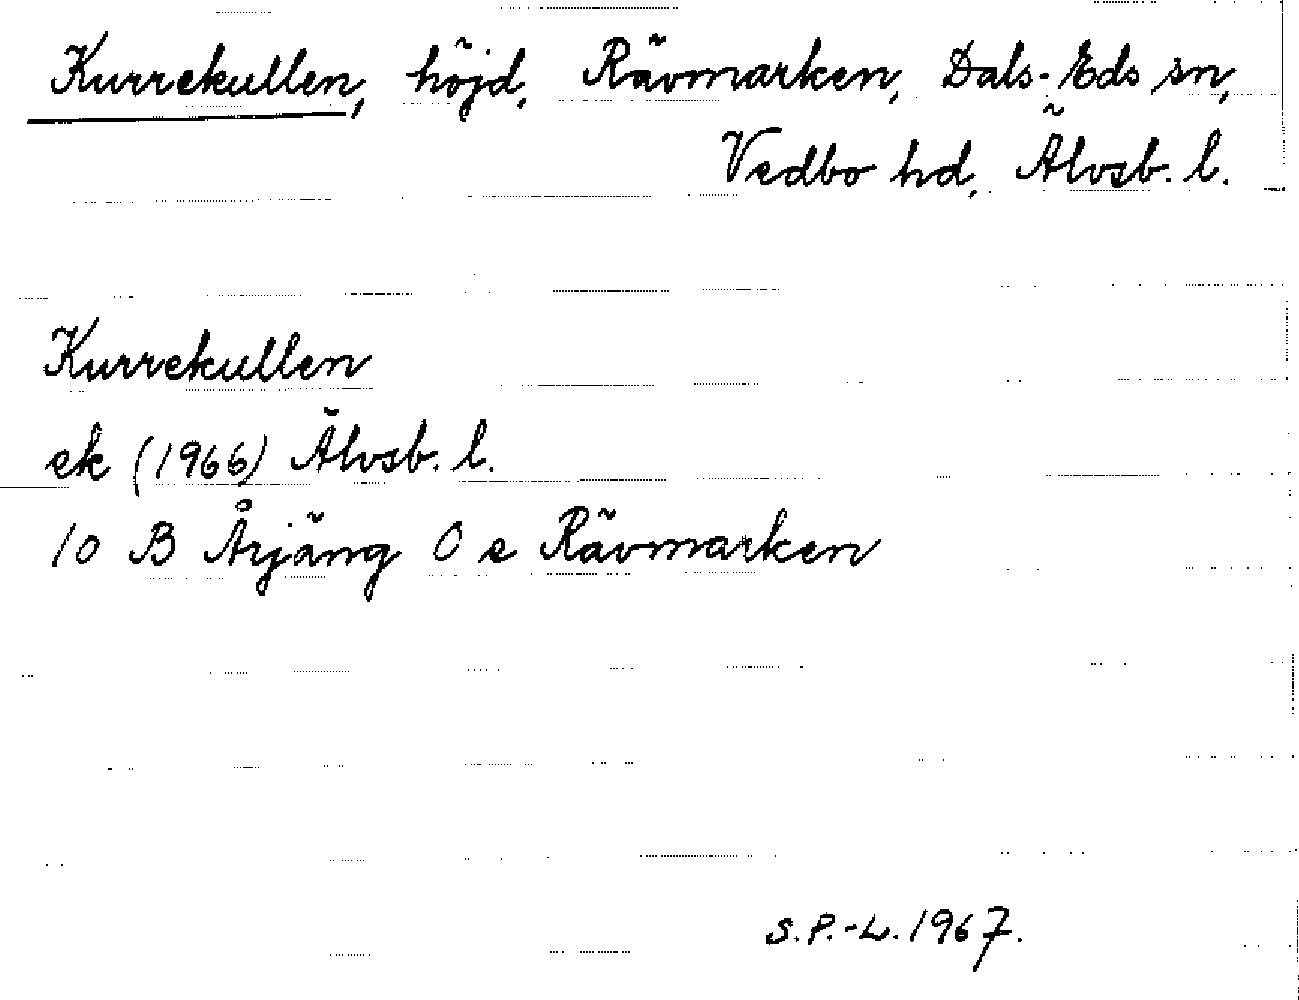 Kurrekullen, höjd, Rävmarken, Dals-Eds sn,
Vedbo hd, Älvsb. l.
Kurrekullen
ek (1966) Älvsb. l.
10 B Årjäng 0 e Rävmarken
S.P.-L. 1967.